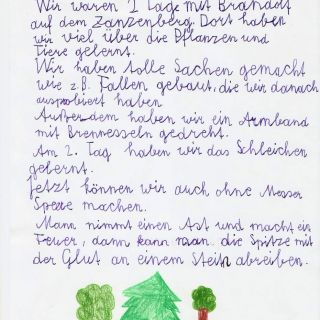 Wir waren 2 Tage mit Brandolf
auf dem Zanzenberg. Dort haben
wir viel über die Pflanzen und
Tiere gelernt.
Wir haben tolle Sachen gemacht
wie z.B. Fallen gebaut, die wir danach
ausprobiert haben.
Außerdem haben wir ein Armband
mit Brennesseln gedreht.
Am 2. Tag haben wir das Schleichen
gelernt.
Jetzt können wir auch ohne Messer
Speere machen.
Mann nimmt einen Ast und macht ein
Feuer, dann kann man die Spitze mit
der Glut an einem Stein abreiben.